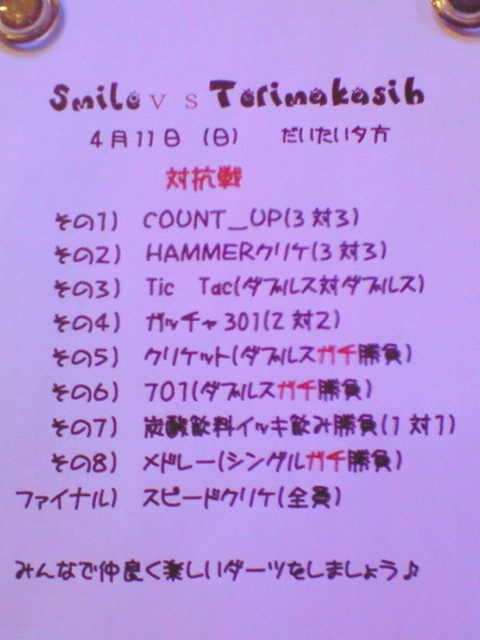 Smile VS Terimakasih
4月11日 (日) だいたい夕方
対抗戦
その1) COUNT_UP(3対3)
その2) HAMMERクリケ(3対3)
その3) Tic Tac(ダブルス対ダブルス)
その4) ガッチャ301(2対2)
その5) クリケット(ダブルスガチ勝負)
その6) 701(ダブルスガチ勝負)
その7) 炭酸飲料イッキ飲み勝負(1対1)
その8) メドレー(シングルガチ勝負)
ファイナル) スピードクリケ(全員)
みんなで仲良く楽しいダーツをしましょう♪